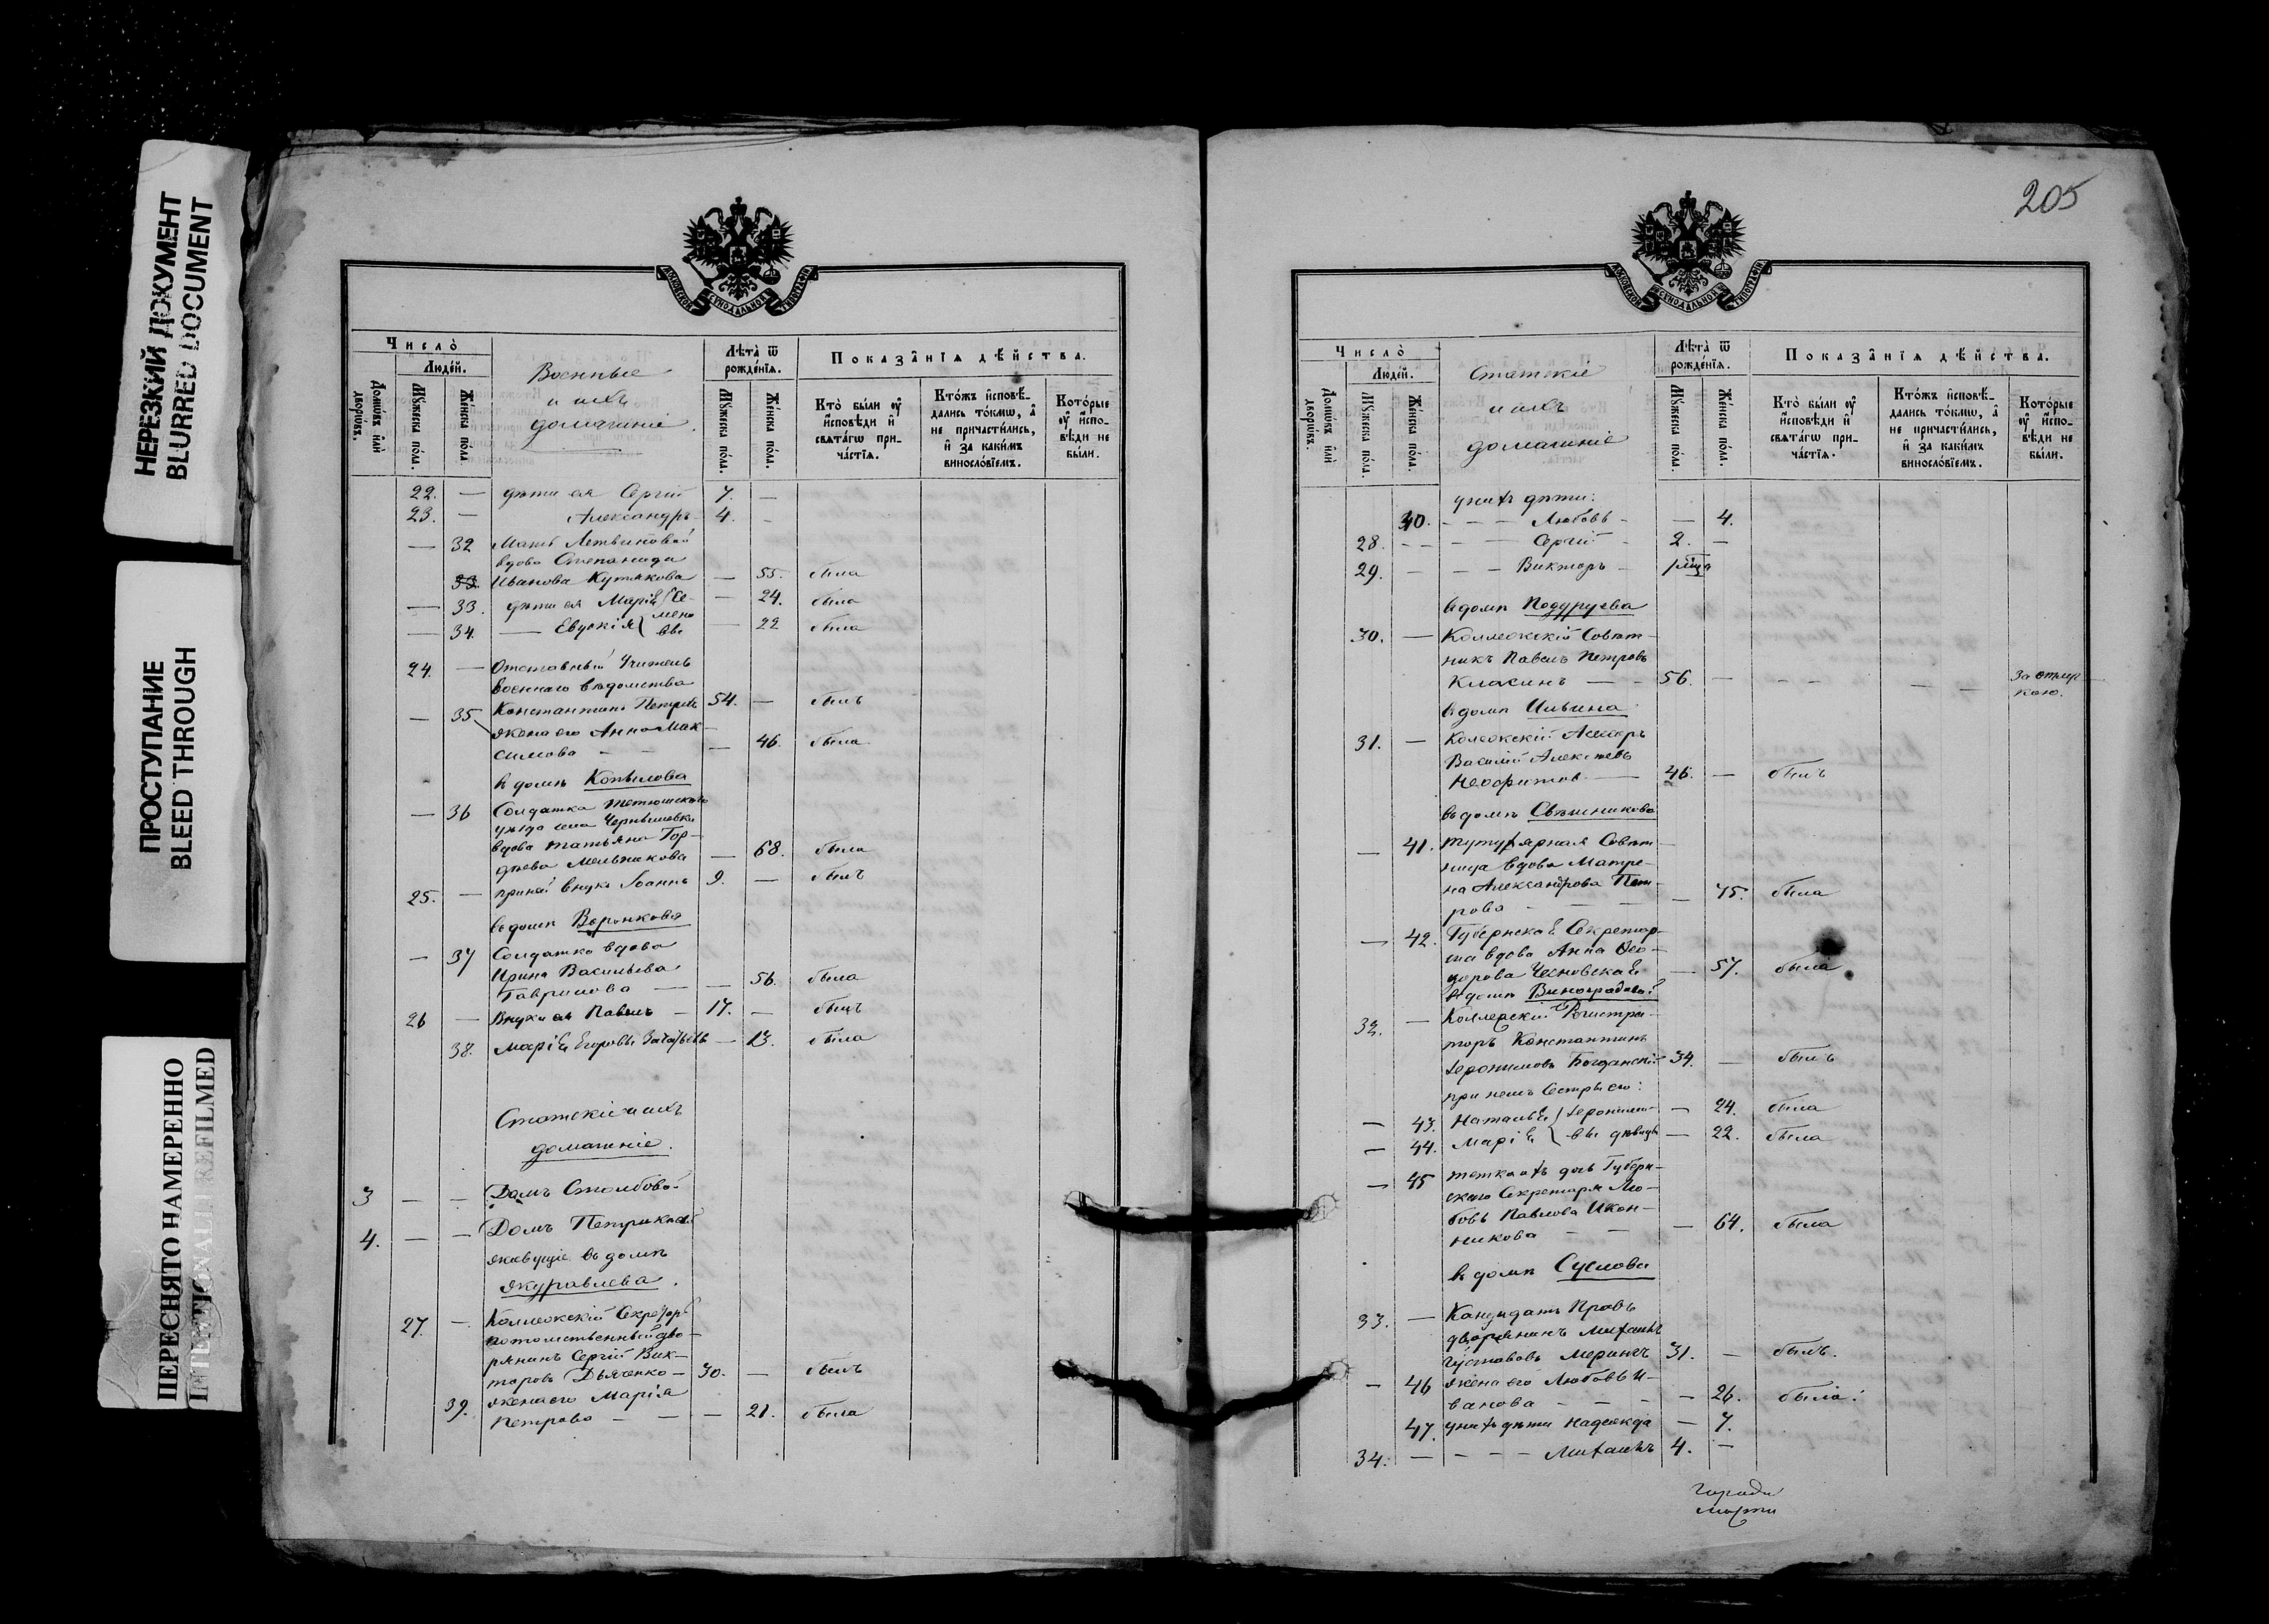 НЕРЕЗКИЙ ДОКУМЕНТ
BLURRED DOCUMENT
ПРОСТУПАНИЕ
BLEED THROUGH
ПЕРЕСНЯТО НАМЕРЕННО
INTENTIONALLY REFILMED
МОСКОВСКОЙ СѴНОДАЛЬНОЙ ТИПОГРАФІИ
Число̀
Люде́й.
Домѡ́въ и҆лѝ дворѡ́въ.
Мꙋ́жеска по́ла.
Же́нска по́ла.
Военные
и ихъ
домашніе.
Лѣ́та ѿ рожде́нїѧ.
Мꙋ́жеска по́ла.
Же́нска по́ла.
Показа̑нїѧ дѣ́йства.
Кто̀ бы́ли ᲂу҆ и҆сповѣ́ди и҆ свѧта́гѡ при-
ча́стїѧ.
Кто́жъ и҆сповѣ́-
дались то́кмѡ, а҆
не причасти́лись,
и҆ за каки́мъ
винослові́емъ.
Кото́рые
ᲂу҆ и҆спо-
вѣ́ди не
бы́ли.
22. — дѣти ея Сергій 7. —
23. — Александръ 4. —
— 32 Мать Летвиновой
вдова Степанида
33. Иванова Кутякова — 55. была
— 33. дѣти ея Марія Се- — 24. была
— 34. — Евдокія мено вы — 22 была
24. — Отставный Учитель
военнаго вѣдомства
Константинъ Петровъ 54. — былъ
— 35 жена его Анна Мак-
симова — — — 46. была
въ домѣ Копылова
— 36 Солдатка Тетюшскаго
уѣзда села Чернышовки
вдова Татьяна Гор-
дѣева Мельникова — 68. была
25. — при ней внукъ Іоаннъ 9. — былъ
въ домѣ Воронкова
— 37 Солдатка вдова
Ирина Васильева
Гаврилова — — 56. была
26 — Внуки ея Павелъ — 17. — былъ
38. Марія Егоровы — 13. была
Статскіе и ихъ
домашніе.
3 — — Домъ Столбовой
4. — — Домъ Петрикова
живущіе въ домѣ
Журавлева.
27. — Коллежскій Секретарь
потомственный дво-
рянинъ Сергій Вик-
торовъ Дьяченко — 30. — былъ
39. жена его Марія
Петрова — — — 21. была
205
МОСКОВСКОЙ СѴНОДАЛЬНОЙ ТИПОГРАФІИ
Число̀
Люде́й.
Домѡ́въ и҆лѝ дворѡ́въ.
Мꙋ́жеска по́ла.
Же́нска по́ла.
Статскіе
и ихъ
домашніе
Лѣ́та ѿ рожде́нїѧ.
Мꙋ́жеска по́ла.
Же́нска по́ла.
Показа̑нїѧ дѣ́йства.
Кто̀ бы́ли ᲂу҆ и҆сповѣ́ди и҆ свѧта́гѡ при-
ча́стїѧ.
Кто́жъ и҆сповѣ́-
дались то́кмѡ, а҆
не причасти́лись,
и҆ за каки́мъ
винослові́емъ.
Кото́рые
ᲂу҆ и҆спо-
вѣ́ди не
бы́ли.
у нихъ дѣти:
40. — — — Любовь — — 4.
28. — — — Сергій — 2. —
29. — — — Викторъ —
въ домѣ Подуруева
30. — Коллежскій Совѣт-
никъ Павелъ Петровъ
Класинъ — — 56. — — — — — За отлуч
кою.
въ домѣ Ильина
31. — Коллежскій Асесоръ
Василій Алексѣевъ
Неофитов — 46. — былъ
въ домѣ Свѣшникова
— 41. Титулярная Совѣт-
ница вдова Матре-
на Александрова Пет-
рова — — — — 75. была
— 42. Губернская Секретар-
ша вдова Анна Ѳео-
дорова Чесновская — 57. была
въ домѣ Виноградовой
32. — Коллежскій Регистра-
торъ Константинъ
Іеронимовъ Богданскій 34. — былъ
при немъ Сестры его:
— 43. Наталья Іероними- — 24. была
— 44. Марія вы дѣвицы — 22. была
— 45 тетка ихъ дочь Губерн-
скаго Секретаря Лю-
бовь Павлова Икон-
никова — — — 64. была
въ домѣ Суслова
33. — Кандидатъ Правъ
дворянинъ Михаилъ
Густавовъ Мерингъ 31. — былъ.
— 46 жена его Любовь И-
ванова — — — — 26. была.
47. у нихъ дѣти Надежда — 7.
34. — — — — Михаилъ 4. —